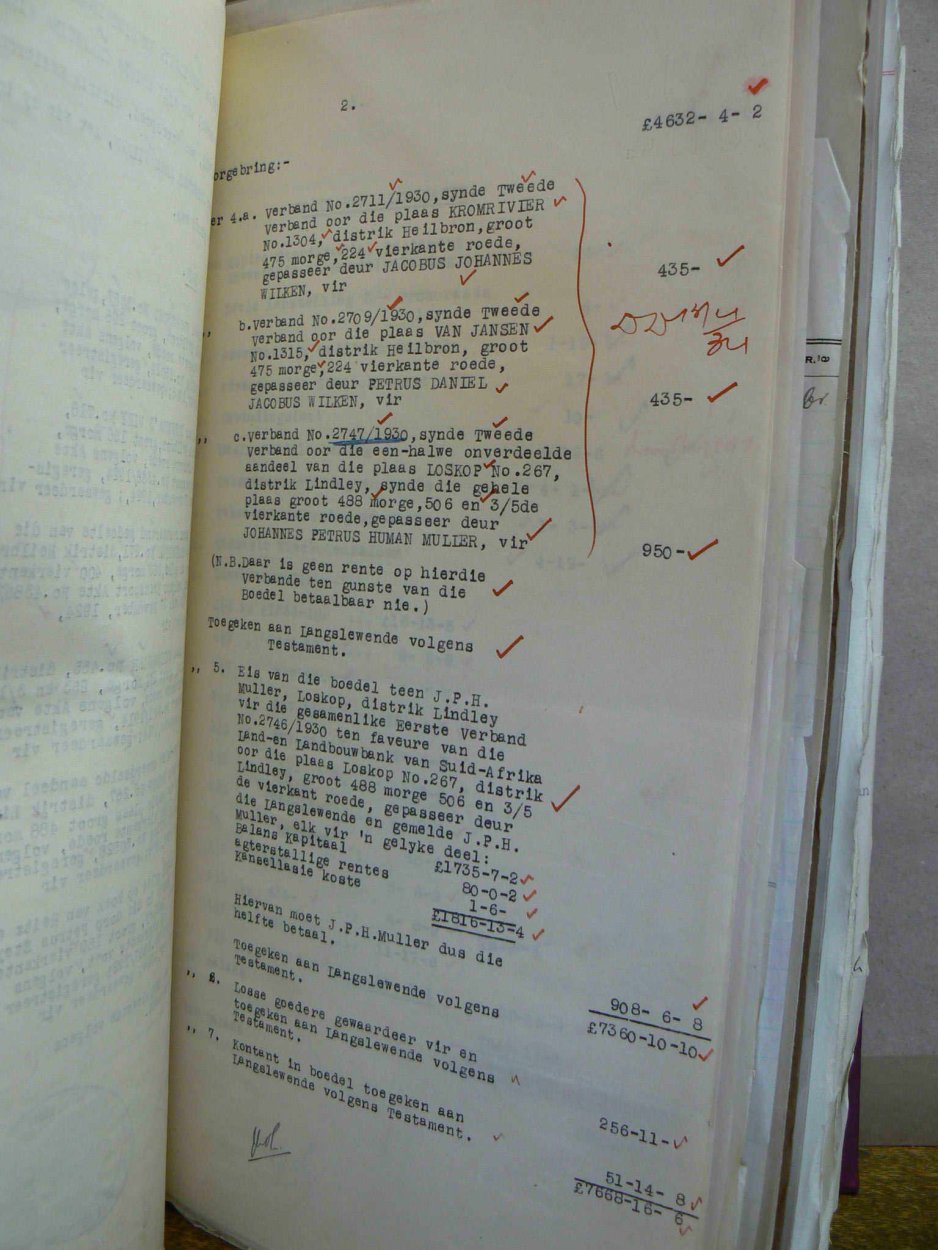 2.
£4632- 4- 2
orgebring:-
er 4.a. verband No.2711/1930,synde Tweede
verband oor die plaas KROMRIVIER
No.1304, distrik Heilbron,groot
475 morge,224 vierkante roede,
gepasseer deur JACOBUS JOHANNES
WILKEN, vir 435-
,, b.verband No.2709/1930,synde Tweede
verband oor die plaas VAN JANSEN
No.1315, distrik Heilbron, groot
475 morge,224 vierkante roede,
gepasseer deur PETRUS DANIEL
JACOBUS WILKEN, vir 435-
,, c.verband No.2747/1930,synde Tweede
verband oor die een-halwe onverdeelde
aandeel van die plaas LOSKOP No.267,
distrik Lindley, synde die gehele
plaas groot 488 morge,506 en 3/5de
vierkante roede,gepasseer deur
JOHANNES PETRUS HUMAN MULLER, vir 950-
(N.B.Daar is geen rente op hierdie
verbande ten gunste van die
Boedel betaalbaar nie.)
Toegeken aan Langslewende volgens
Testament.
,, 5. Eis van die boedel teen J.P.H.
Muller, Loskop, distrik Lindley
vir die gesamenlike Eerste Verband
No.2746/1930 ten faveure van die
Land-en Landbouwbank van Suid-Afrika
oor die plaas Loskop No.267, distrik
Lindley, groot 488 morge 506 en 3/5
de vierkant roede, gepasseer deur
die Langslewende en gemelde J.P.H.
Muller, elk vir 'n gelyke deel:
Balans Kapitaal £1735-7-2
agterstallige rentes 80-0-2
Kansellasie koste 1-6-
£1816-13-4
Hiervan moet J.P.H.Muller dus die
helfte betaal.
Toegeken aan Langslewende volgens
Testament. 908- 6- 8
£7360-10-10
,, 6. Losse goedere gewaardeer vir en
toegeken aan Langslewende volgens
Testament. 256-11-
,, 7. Kontant in boedel toegeken aan
Langslewende volgens Testament. 51-14- 8
£7668-16- 6